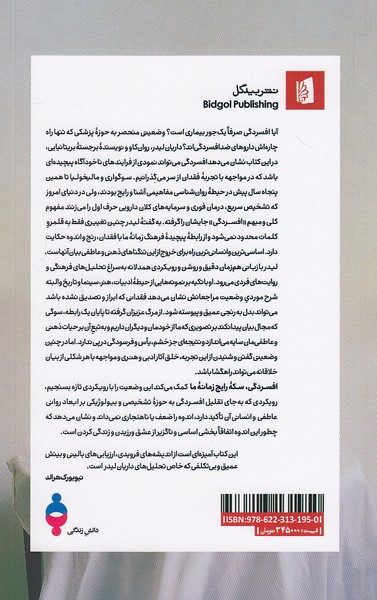 نشر بیدگل
Bidgol Publishing
آیا افسردگی صرفاً یک‌جور بیماری است؟ وضعیتی منحصر به حوزهٔ پزشکی که تنها راه
چاره‌اش داروهای ضدافسردگی‌اند؟ داریان لیدر، روان‌کاو و نویسندهٔ برجستهٔ بریتانیایی،
در این کتاب نشان می‌دهد افسردگی می‌تواند نمودی از فرایندهای ناخودآگاه پیچیده‌ای
باشد که در مواجهه با تجربهٔ فقدان از سر می‌گذرانیم. سوگواری و مالیخولیا تا همین
پنجاه سال پیش در حیطهٔ روان‌شناسی مفاهیمی آشنا و رایج بودند، ولی در دنیای امروز
که تشخیص سریع، درمان فوری و سرمایه‌های کلان دارویی حرف اول را می‌زنند مفهوم
کلی و مبهم «افسردگی» جایشان را گرفته. به گفتهٔ لیدر چنین تغییری فقط به قلمرو
کلمات محدود نمی‌شود و از رابطهٔ پیچیدهٔ فرهنگ زمانهٔ ما با فقدان، رنج و اندوه حکایت
دارد. اساسی‌ترین و انسانی‌ترین راه برای خروج از این تنگناهای ذهنی و عاطفی بیان آنهاست.
لیدر با زبانی هم‌زمان دقیق و روشن و رویکردی همدلانه به‌سراغ تحلیل‌های فرهنگی و
روایت‌های فردی می‌رود. او با تکیه بر نمونه‌هایی از حیطهٔ ادبیات، هنر، سینما و تاریخ و البته
شرح موردیِ وضعیت مراجعانش نشان می‌دهد فقدانی که ابراز و تصدیق نشده باشد
می‌تواند بدل به رنجی عمیق و پیوسته شود. از مرگ عزیزان گرفته تا پایان یک رابطه، سوگی
که مجال بیان پیدا نکند بر تصویری که ما از خودمان و دیگران داریم و به‌تبعِ آن بر حیات ذهنی
و عاطفی‌مان سایه می‌اندازد و نتیجه‌ای جز خشم، یأس و فرسودگی در پی ندارد. اما در چنین
وضعیتی گفتن و شنیدن از این تجربه، خلق آثار ادبی و هنری و مواجهه با هر شکلی از بیان
خلاقانه می‌تواند راهگشا باشد.
افسردگی، سکهٔ رایج زمانهٔ ما کمک می‌کند این وضعیت را با رویکردی تازه بسنجیم،
رویکردی که به‌جای تقلیل افسردگی به حوزهٔ تشخیصی و بیولوژیکی بر ابعاد روانی
عاطفی و انسانی آن تأکید دارد، اندوه را ضعف یا ناهنجاری نمی‌داند و نشان می‌دهد که
چطور این اندوه اتفاقاً بخشی اساسی و ناگزیر از عشق ورزیدن و زندگی کردن است.
این کتاب آمیزه‌ای است از اندیشه‌های فرویدی، ارزیابی‌های بالینی و بینش
عمیق و بی‌تکلفی که خاص تحلیل‌های داریان لیدر است.
نیویورک هرالد
ISBN: 978-622-313-195-0
قیمت: ۳۴۵۰۰۰ تومان
دانش زندگی